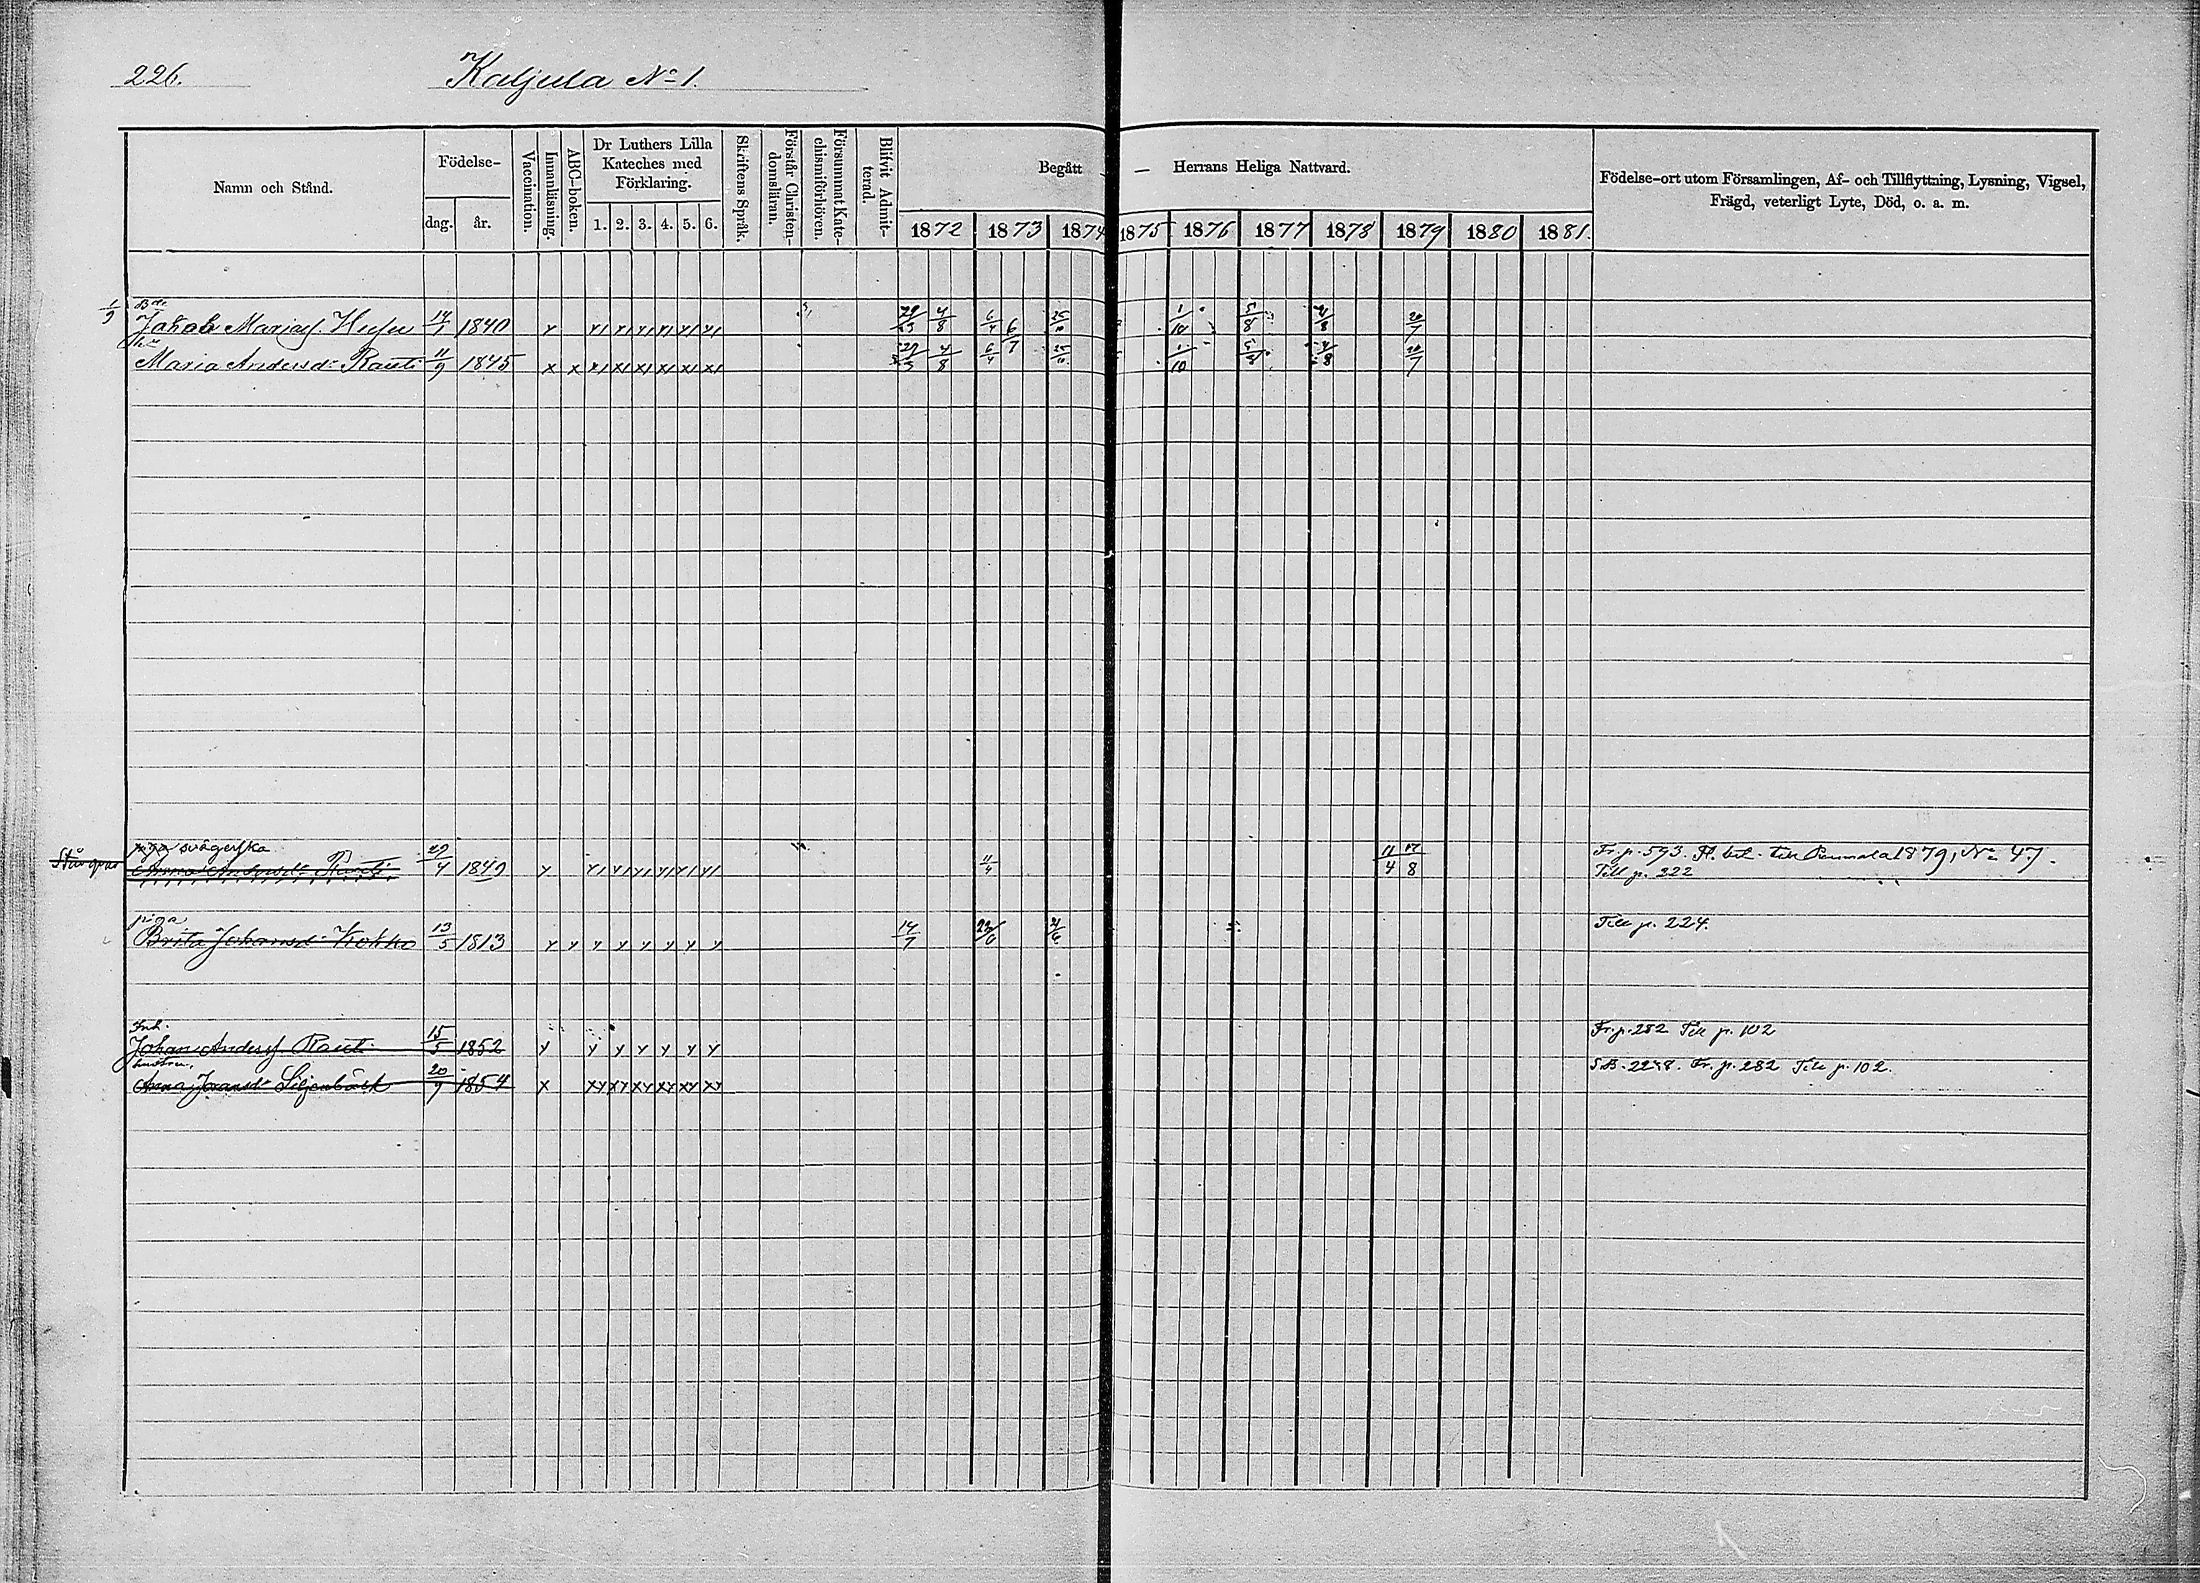 226.
Kaljula No 1.
Namn och Stånd.
Födelse-
dag.
år.
Vaccination.
Innanläsning.
ABC-boken.
Dr Luthers Lilla
Kateches med
Förklaring.
1. 2. 3. 4. 5. 6.
Skriftens Språk.
Förstår Christen-
domsläran.
Försummat Kate-
chismiförhören.
Blifvit Admit-
terad.
Begått — Herrans Heliga Nattvard.
1872 1873 1874 1875 1876 1877 1878 1879 1880 1881.
Födelse-ort utom Församlingen, Af- och Tillflyttning, Lysning, Vigsel,
Frägd, veterligt Lyte, Död, o. a. m.
Jakob 14/1 1840 x 4/8 6/4 6/7 25/10 1/10 5/8 21/7
Maria Andersdr Rauti 11/9 1845 x x x/ x/ x/ x/ x/ x/ 4/8 6/4 25/10 1/10 5/8 21/7
piga svägerska
Anna Andersdr Rauti 29/4 1849 11/4 11/4 17/8 Fr. p. 593. Fl. bet. till 1879, No 47.
Till p. 222
piga
Brita Johansdr 13/5 1813 14/7 Till p. 224.
Inh.
Johan Anders. Rauti 15/5 1852 Fr. p. 282 Till p. 102
hustru,
Anna 20/9 1854 x Fr. p. 282 Till p. 102.